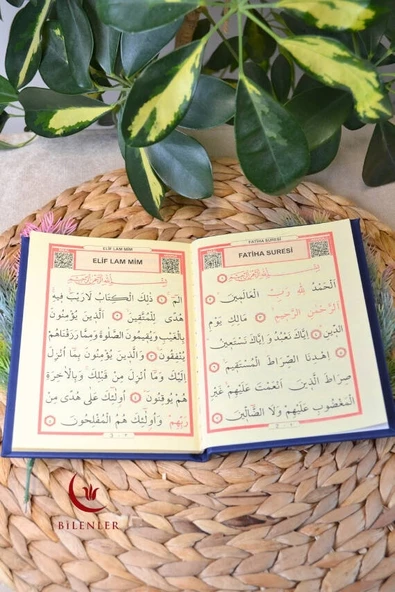 FATİHA SURESİ
FATİHA SURESİ
بِسْمِ اللّٰهِ الرَّحْمٰنِ الرَّحِيمِ
اَلْحَمْدُ لِلّٰهِ رَبِّ الْعَالَمِينَ
اَلرَّحْمٰنِ الرَّحِيمِ مَالِكِ يَوْمِ
الدِّينِ اِيَّاكَ نَعْبُدُ وَاِيَّاكَ نَسْتَعِينُ
اِهْدِنَا الصِّرَاطَ الْمُسْتَقِيمَ
صِرَاطَ الَّذِينَ اَنْعَمْتَ عَلَيْهِمْ غَيْرِ
الْمَغْضُوبِ عَلَيْهِمْ وَلَا الضَّالِّينَ
ELİF LAM MİM
ELİF LAM MİM
بِسْمِ اللّٰهِ الرَّحْمٰنِ الرَّحِيمِ
الٓمٓ ذٰلِكَ الْكِتَابُ لَا رَيْبَ فِيهِ
هُدًى لِلْمُتَّقِينَ اَلَّذِينَ يُؤْمِنُونَ
بِالْغَيْبِ وَيُقِيمُونَ الصَّلٰوةَ وَمِمَّا رَزَقْنَاهُمْ
يُنْفِقُونَ وَالَّذِينَ يُؤْمِنُونَ بِمَا اُنْزِلَ
اِلَيْكَ وَمَا اُنْزِلَ مِنْ قَبْلِكَ وَبِالْاٰخِرَةِ
هُمْ يُوقِنُونَ اُولٰٓئِكَ عَلٰى هُدًى مِنْ
رَبِّهِمْ وَاُولٰٓئِكَ هُمُ الْمُفْلِحُونَ
BİLENLER